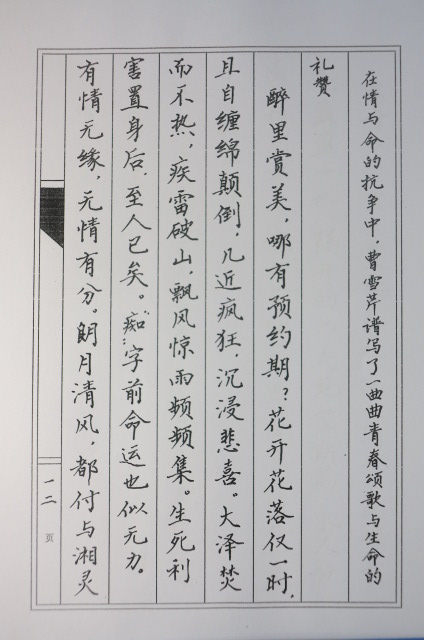 在情与命的抗争中，曹雪芹谱写了一曲曲青春颂歌与生命的
礼赞
醉里赏美，哪有预约期？花开花落仅一时，
且自缠绵颠倒，几近疯狂，沉浸悲喜。大泽焚
而不热，疾雷破山，飘风惊雨频频集。生死利
害置身后，至人已矣。“痴”字前命运也似无力。
有情无缘，无情有分。朗月清风，都付与湘灵
一二
页